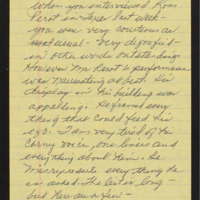 when you interviewed Ross
Perot in Texas last week -
you were very courteous as
usual - Very dignified -
in other words outstanding.
However Mr. Perot's performance
was nauseating at best. His
display in his building was
appalling. He framed every
thing that could feed his
ego. I am very tired of his
Corny voice, one liners and
everything about him. He
misrepresents everything he
is asked. The list is long -
but here are a few -